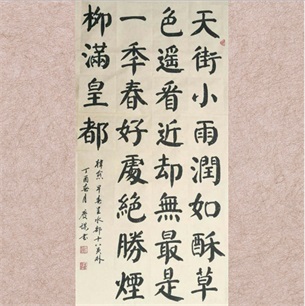 天街小雨潤如酥草
色遥看近却無最是
一季春好處絶勝煙
柳滿皇都
韓愈早春呈水部十八員外